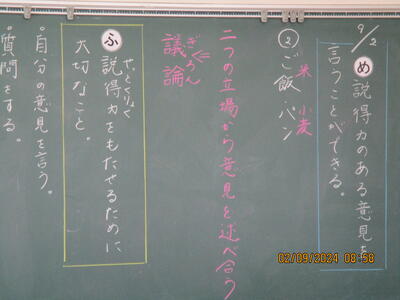 9/2
め 説得力のある意見を
言うことができる。
② ご飯・パン
米 小麦
二つの立場から意見を述べ合う
ぎろん
議論
せっとくりょく
ふ 説得力をもたせるために
大切なこと。
・自分の意見を言う。
・質問をする。
02/09/2024 08:58